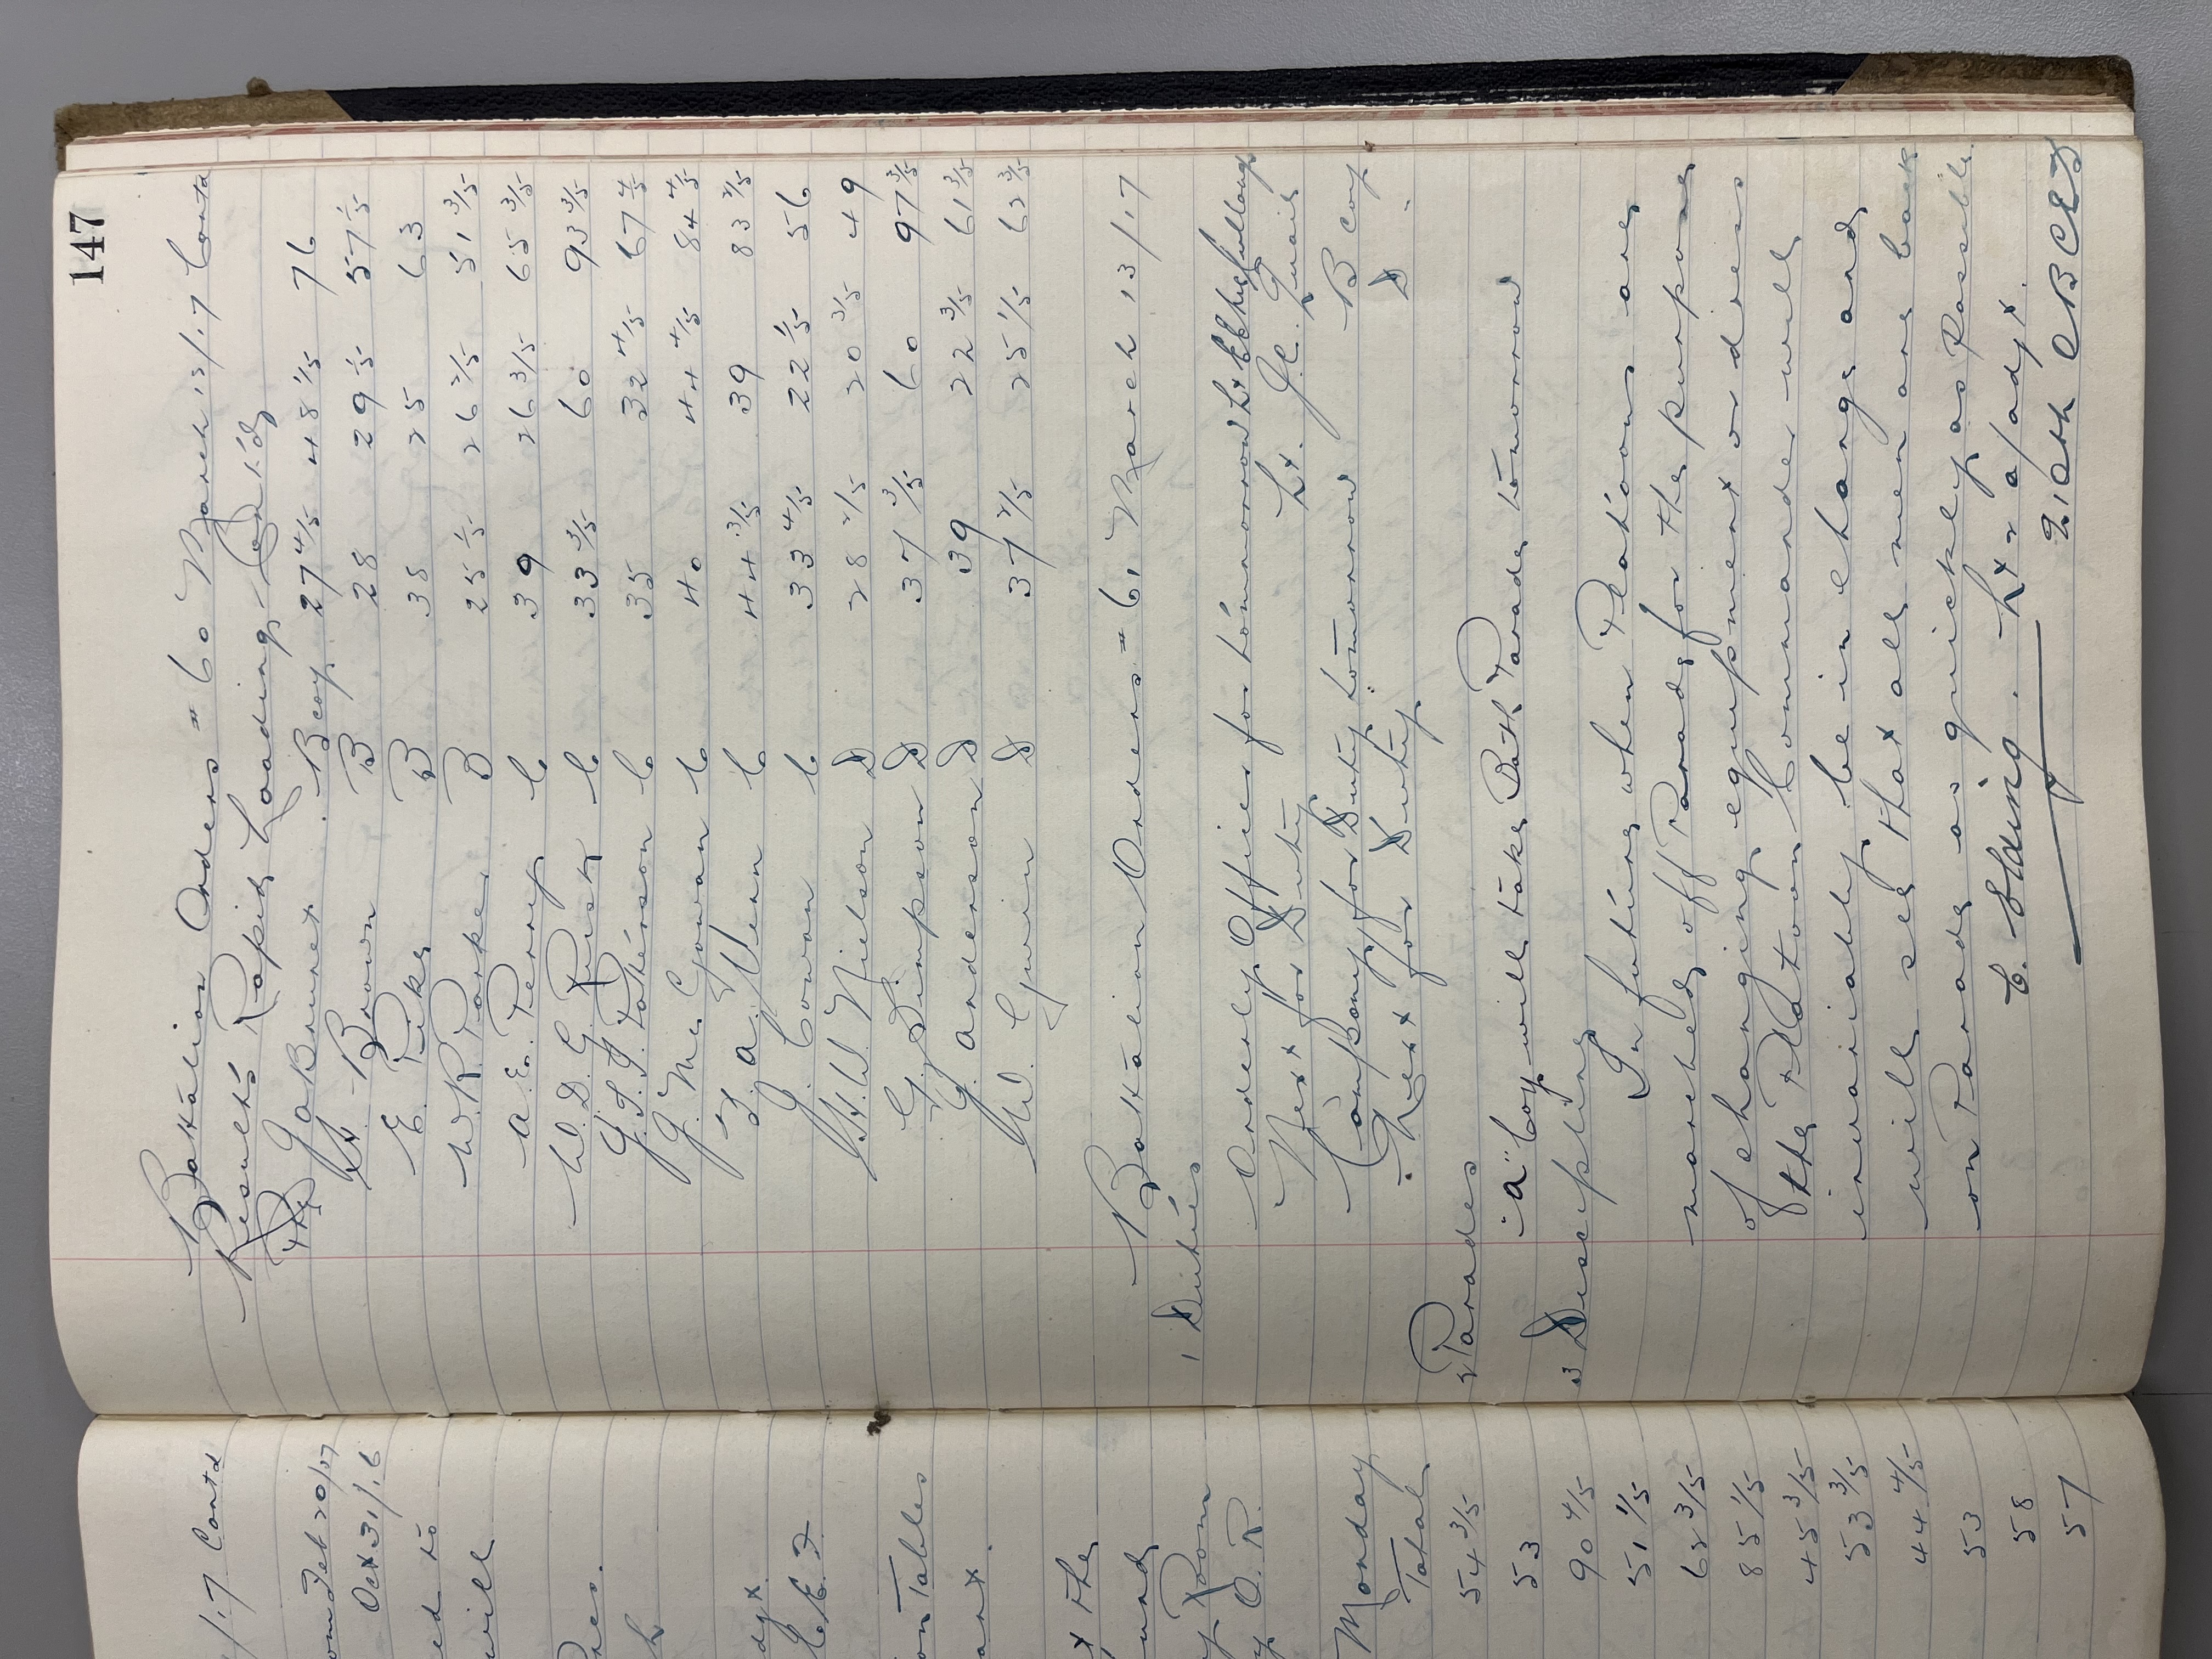 147
Battalion Orders # 60 March 12/17 Contd
Results Rapid Loading Contd
Pte J A Brunet B Coy 27 4/5 48 1/5 76
H. Brown B 28 29 1/5 57 1/5
E. Pike B 38 25 63
W. R. Parker B 25 1/5 26 2/5 51 3/5
A. E. Perry C 39 26 3/5 65 3/5
W. D. G. Rusk C 33 3/5 60 93 3/5
J. S. F. Paterson C 35 32 4/5 67 4/5
J. McGowan C 40 44 4/5 84 4/5
F. A. Venn C 44 3/5 39 83 3/5
J. Cowan C 33 4/5 22 1/5 56
H. W. Nielson D 28 2/5 20 3/5 49
G. Simpson D 37 3/5 60 97 3/5
J. Anderson D 39 22 3/5 61 3/5
W. Gwin D 37 2/5 25 1/5 62 3/5
Battalion Orders # 61 March 13/17
1 Duties
Orderly Officer for tomorrow Lt
Next for Duty Lt. J. C. Quaif
Company for Duty tomorrow B Coy
Next for Duty D "
2 Parades
"A" Coy will take Bath Parade tomorrow
3 Discipline
In future when Platoons are
marched off Parade for the purpose
of changing equipment or dress
the Platoon Commander will
invariably be in charge and
will see that all men are back
on Parade as quickly as Possible
Lt a/adjt.
/17 Contd
Feb 20/17
Oct 31/16
ed to
will
Pres.
on Tables
x the
Room
O. R.
Monday
Total
54 3/5
53
90 4/5
51 1/5
62 3/5
85 1/5
45 3/5
53 3/5
44 4/5
53
58
57